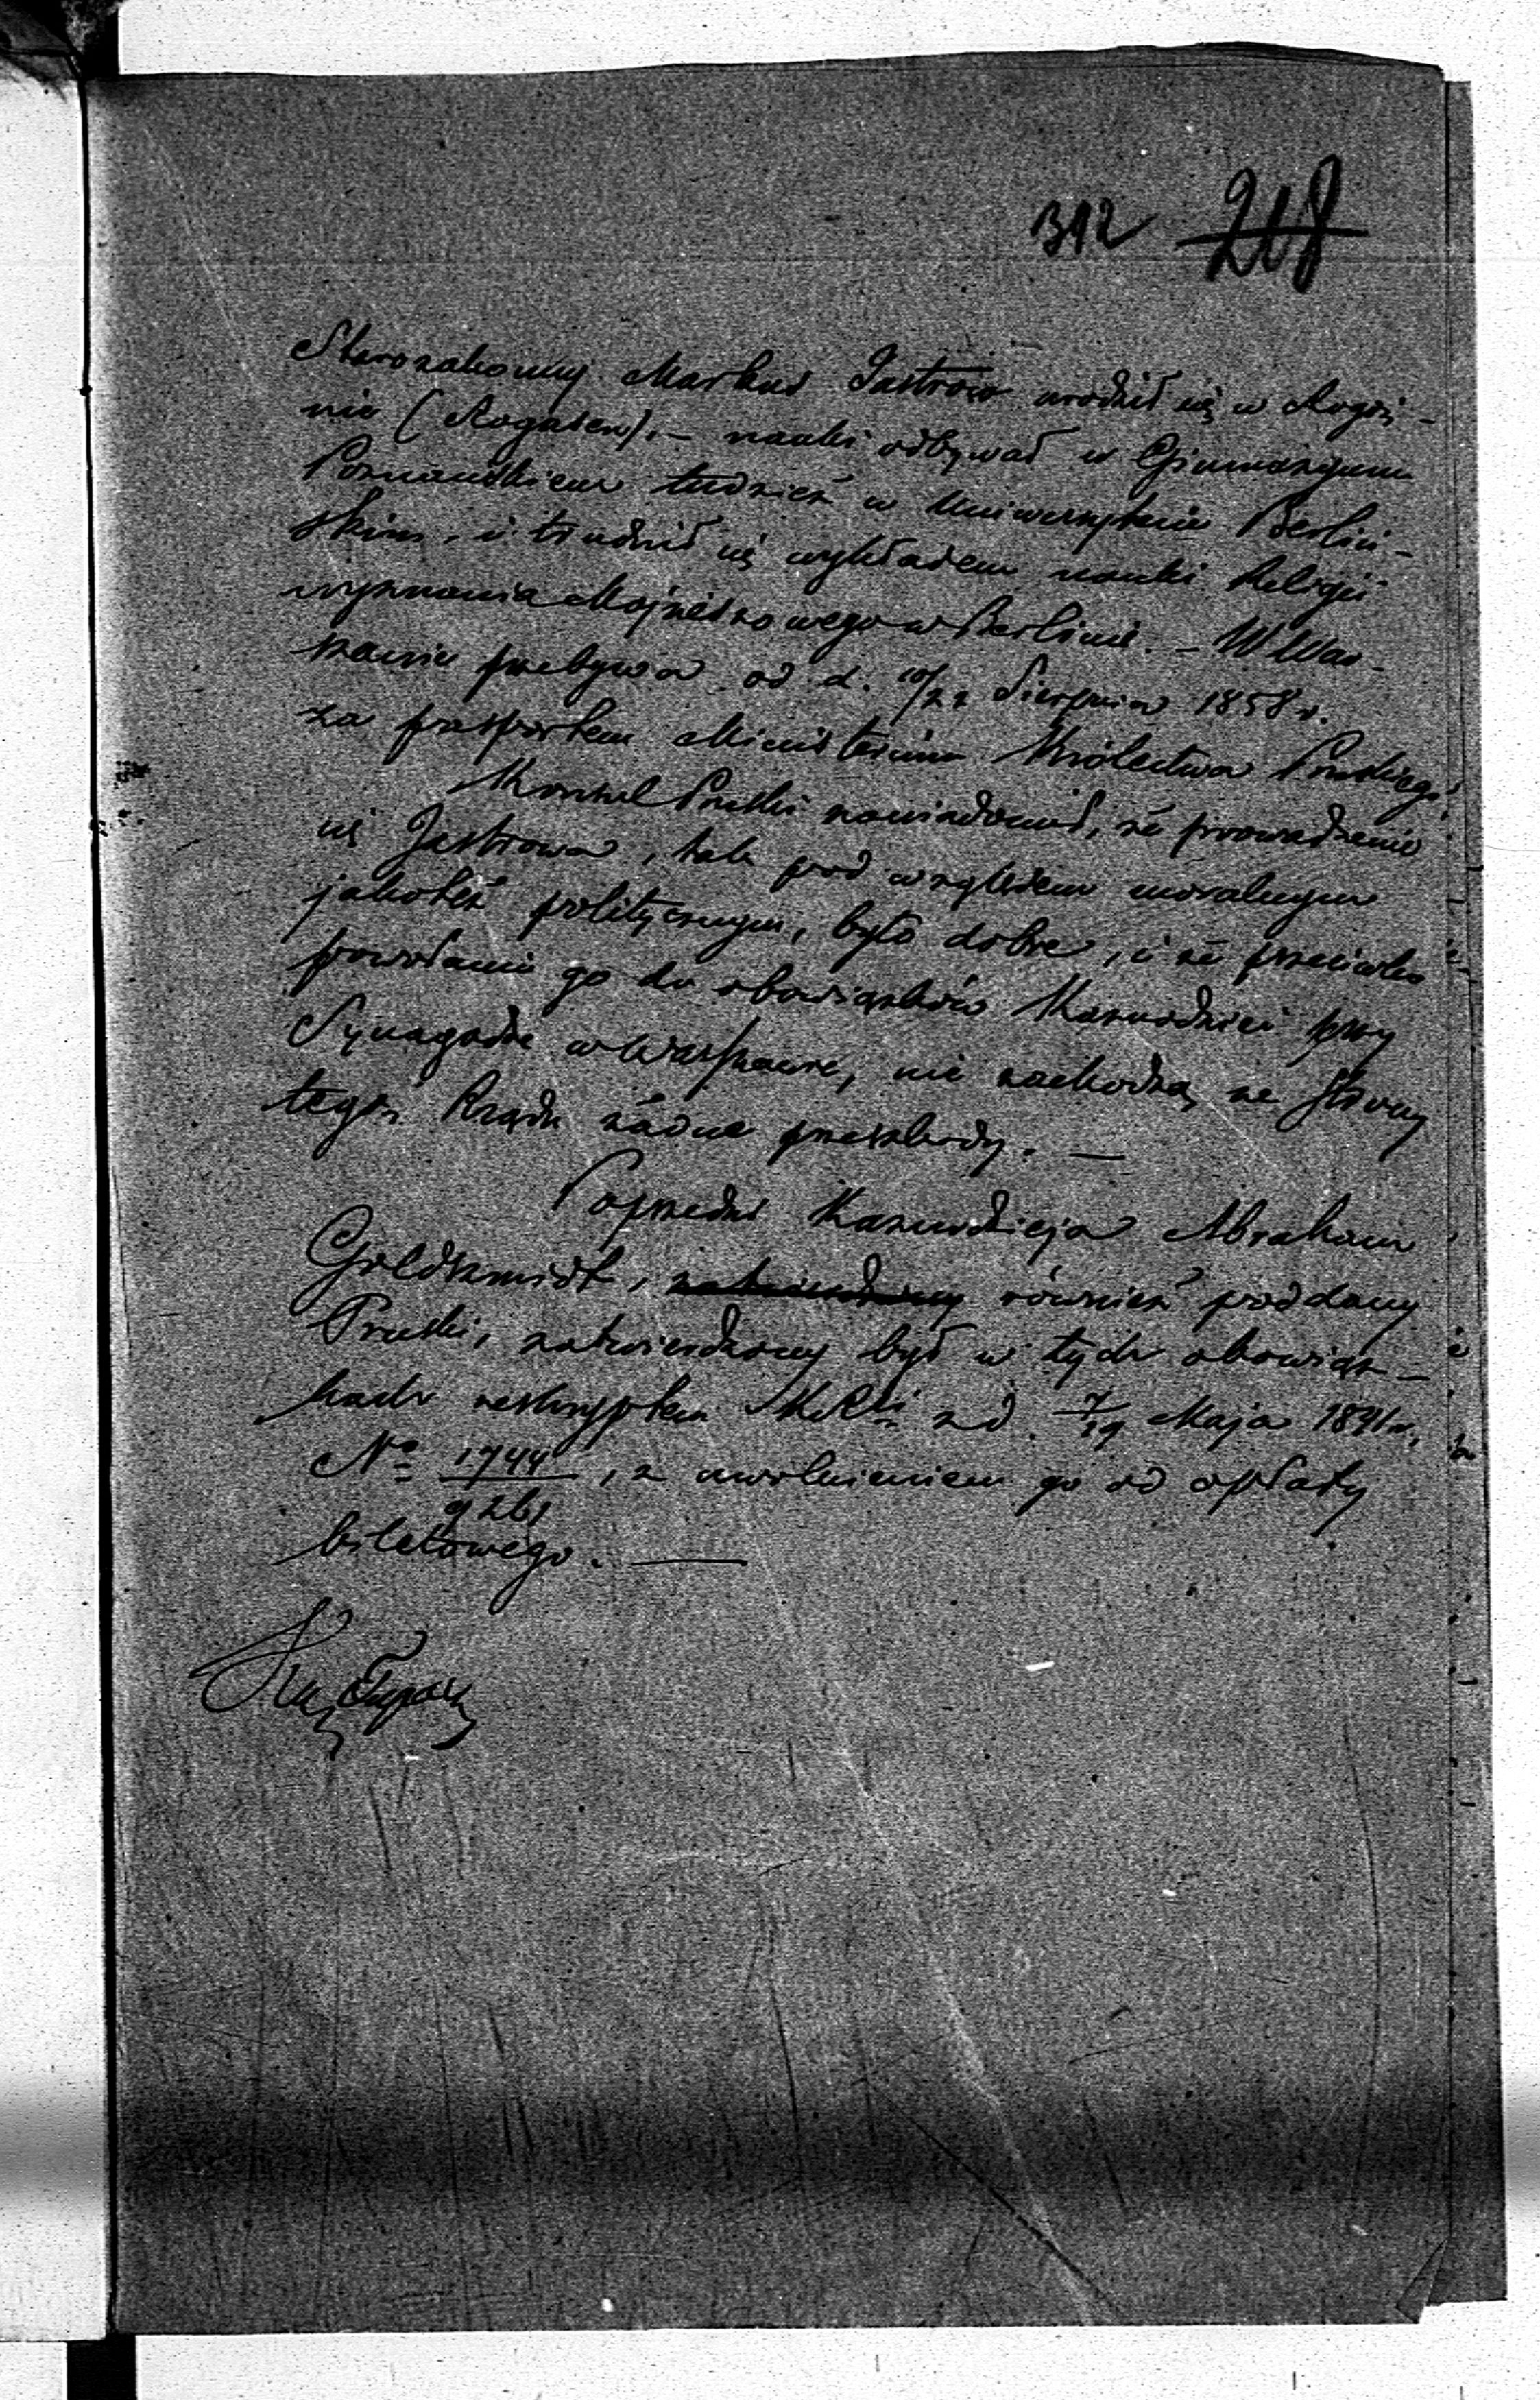 312 208
Starozakonny Markus Jastrow urodził się w Rogoź-
nie (Rogasen). – nauki odbywał w Gimnazyum
Poznańskiem tudzież w Uniwersytecie Berliń-
skim, i trudnił się wykładem nauki Religii
wyznania Mojżeszowego w Berlinie. – W War-
szawie przebywa od d. 10/22 Sierpnia 1858 r.
za paszportem Ministerium Królestwa Pruskiego.
Konsul Pruski zawiadomił, że prowadzenie
się Jastrowa, tak pod względem moralnym
jakoteż politycznym, było dobre, i że przeciwko
powołaniu go do obowiązków Kaznodziei przy
Synagodze w Warszawie, nie zachodzą ze strony
tegoż Rządu żadne przeszkody. –
Poprzedni Kaznodzieja Abraham
Goldszmidt, zatwierdzony również poddany
Pruski, zatwierdzony był w tych obowiąz-
kach reskryptem z d. 7/19 Maja 1841 r.,
No 1744/9261, z uwolnieniem go od opłaty
biletowego. –